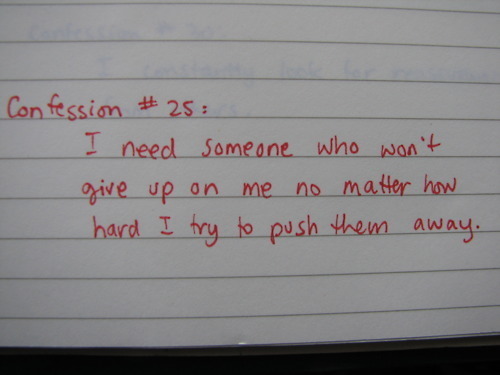 Confession # 25:
I need someone who won't
give up on me no matter how
hard I try to push them away.